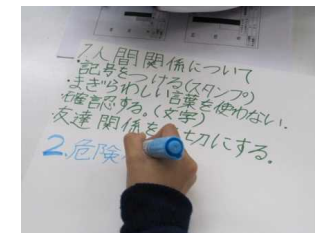 1.人間関係について
・記号をつける(スタンプ)
・まぎらわしい言葉を使わない.
・確認する。(文字)
友達関係を 切にする。
2.危険